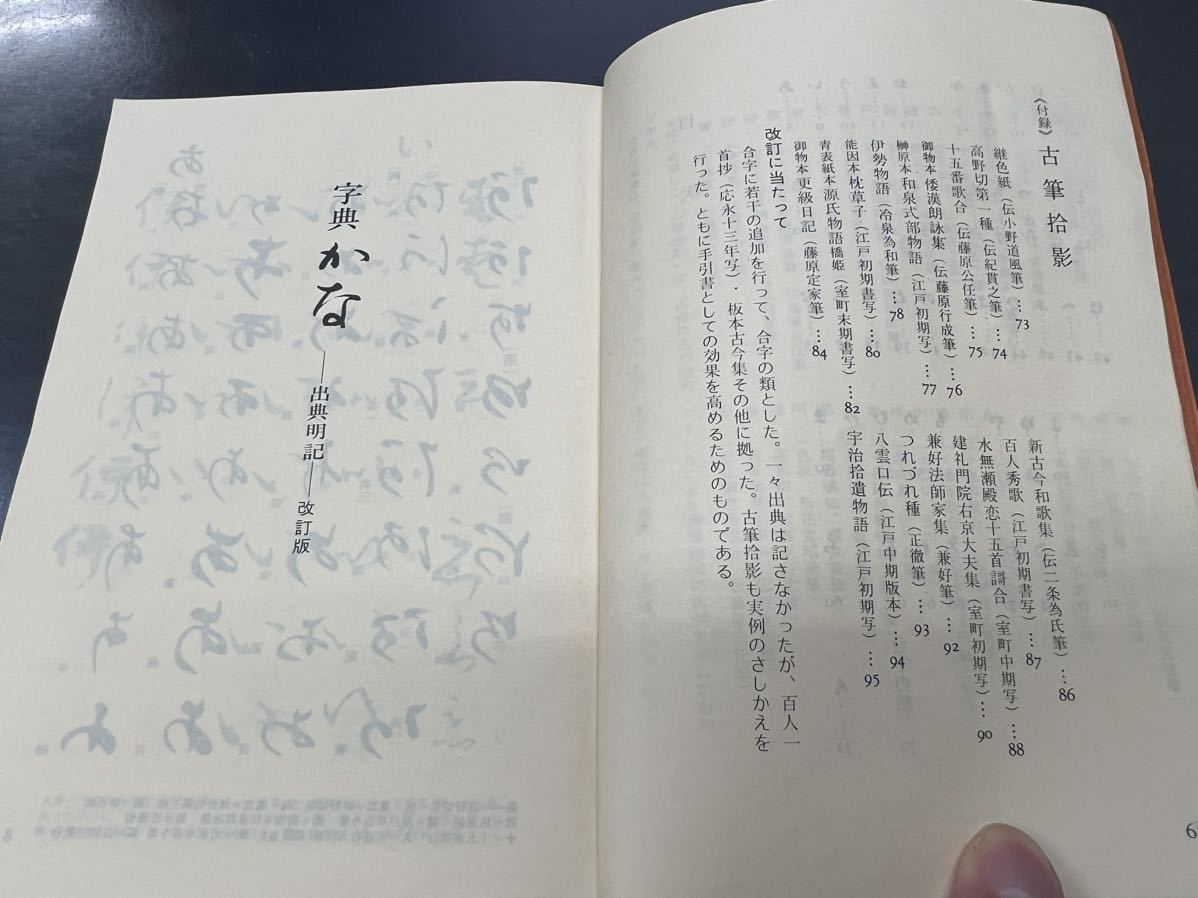 《付録》 古筆拾影
継色紙（伝小野道風筆）…73
高野切第一種（伝紀貫之筆）…74
十五番歌合（伝藤原公任筆）…75
御物本 倭漢朗詠集（伝藤原行成筆）…76
榊原本 和泉式部物語（江戸初期写）…77
伊勢物語（冷泉為和筆）…78
能因本 枕草子（江戸初期書写）…80
青表紙本 源氏物語橋姫（室町末期書写）…82
御物本 更級日記（藤原定家筆）…84
新古今和歌集（伝二条為氏筆）…86
百人秀歌（江戸初期書写）…87
水無瀬殿恋十五首謌合（室町中期写）…88
建礼門院右京大夫集（室町初期写）…90
兼好法師家集（兼好筆）…92
つれづれ種（正徹筆）…93
八雲口伝（江戸中期版本）…94
宇治拾遺物語（江戸初期写）…95
改訂に当たって
合字に若干の追加を行って、合字の類とした。一々出典は記さなかったが、百人一
首抄（応永十三年写）・板本古今集その他に拠った。古筆拾影も実例のさしかえを
行った。ともに手引書としての効果を高めるためのものである。
6
字典かな――出典明記――改訂版